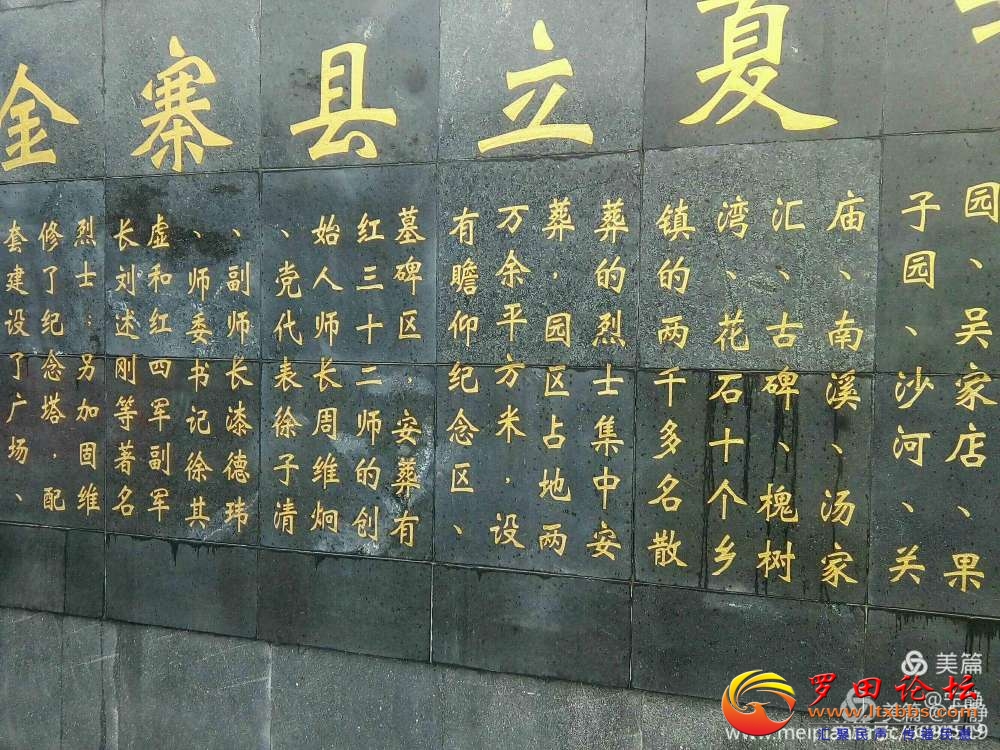 金寨县立夏
园、吴家店、果
子园、沙河、关
庙、南溪、汤家
汇、古碑、槐树
湾、花石十个乡
镇的两千多名散
葬的烈士集中安
葬,园区占地两
万余平方米,设
有瞻仰纪念区、
墓碑区,安葬有
红三十二师的创
始人师长周维炯
、党代表徐子清
、副师长漆德玮
、师委书记徐其
虚和红四军副军
长刘述刚等著名
烈士;另加固维
修了纪念塔,配
套建设了广场、
美篇
罗田论坛
www.ltxbbs.com